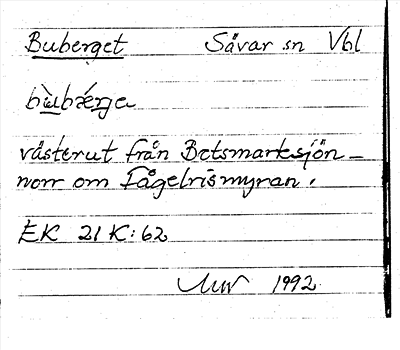 Buberget Sävar sn Vbl
bùbǽŋa
västerut från Botsmarksjön –
norr om Fågelrismyran.
EK 21 K: 62
1992